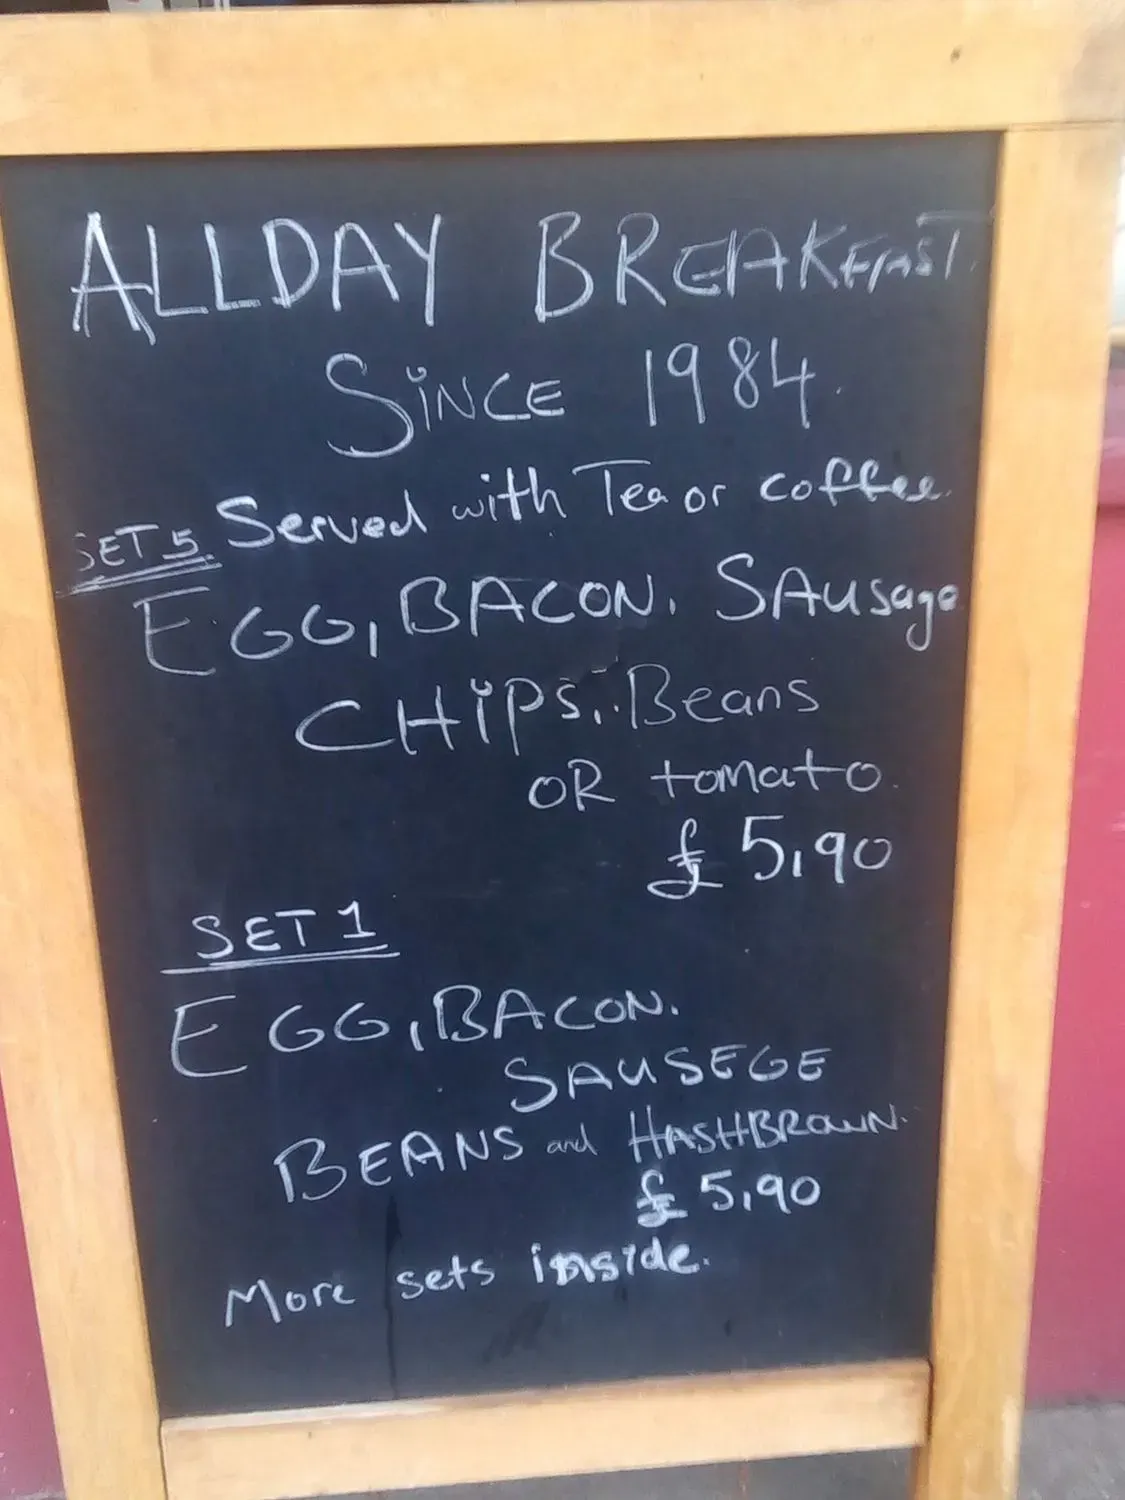 ALLDAY BREAKFAST.
SINCE 1984.
Served with Tea or coffee.
SET 5.
EGG, BACON. SAusage
CHIPS,. Beans
OR tomato.
£ 5,90
SET 1
EGG, BACON.
SAUSEGE
BEANS and HASHBROWN.
£ 5,90
More sets inside.